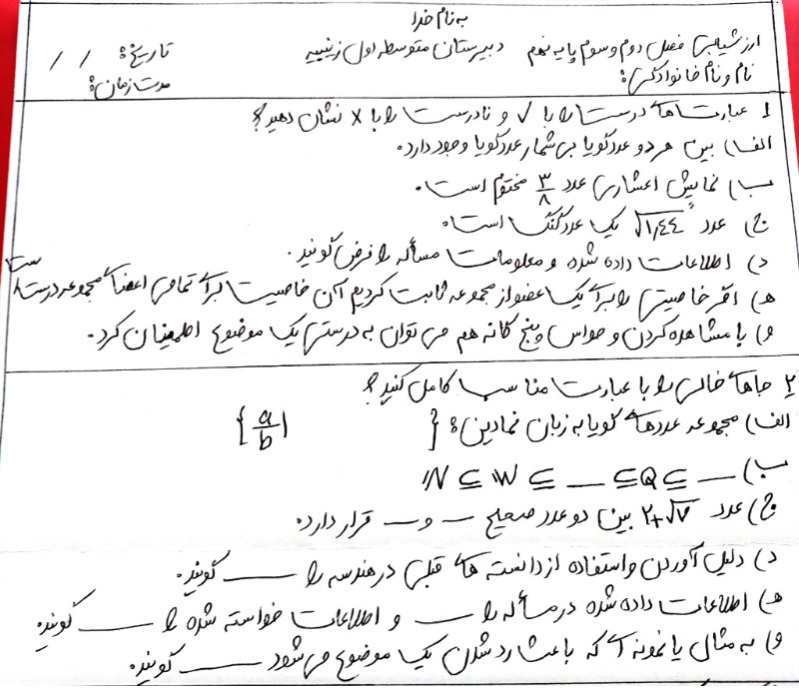 به نام خدا
ارزشیابی فصل دوم و سوم پایه نهم دبیرستان متوسطه اول زینبیه تاریخ: / /
نام و نام خانوادگی: مدت زمان:
۱ عبارت‌های درست را با ✓ و نادرست را با × نشان دهید؟
الف) بین هر دو عدد گویا بی شمار عدد گویا وجود دارد.
ب) نمایش اعشاری عدد ۳/۸ مختوم است.
ج) عدد √۱٫۴۴ یک عدد گنگ است.
د) اطلاعات داده شده و معلومات مسأله را فرض گویند.
ه) اگر خاصیتی را برای یک عضو از مجموعه ثابت کردیم آن خاصیت برای تمامی اعضای مجموعه درست است
و) با مشاهده کردن و حواس پنج گانه هم می توان به درستی یک موضوع اطمینان کرد.
۲ جاهای خالی را با عبارت مناسب کامل کنید؟
الف) مجموعه عددهای گویا به زبان نمادین: { a/b | }
ب) N ⊆ W ⊆ __ ⊆ Q ⊆ __
ج) عدد ۲+√۷ بین دو عدد صحیح __ و __ قرار دارد.
د) دلیل آوردن و استفاده از دانسته های قبلی در هندسه را ____ گویند.
ه) اطلاعات داده شده در مسأله را ___ و اطلاعات خواسته شده را ____ گویند.
و) به مثال یا نمونه ای که باعث رد شدن یک موضوع می شود ____ گویند.